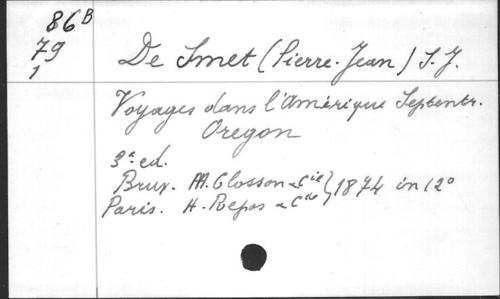 86B
79
1
De Smet (Pierre-Jean) S.J.
Voyages dans l'Amérique Septentr.
Oregon
3a ed.
Brux. M. Closson & Cie } 1874 in 12°
Paris. H. Repos & Cie